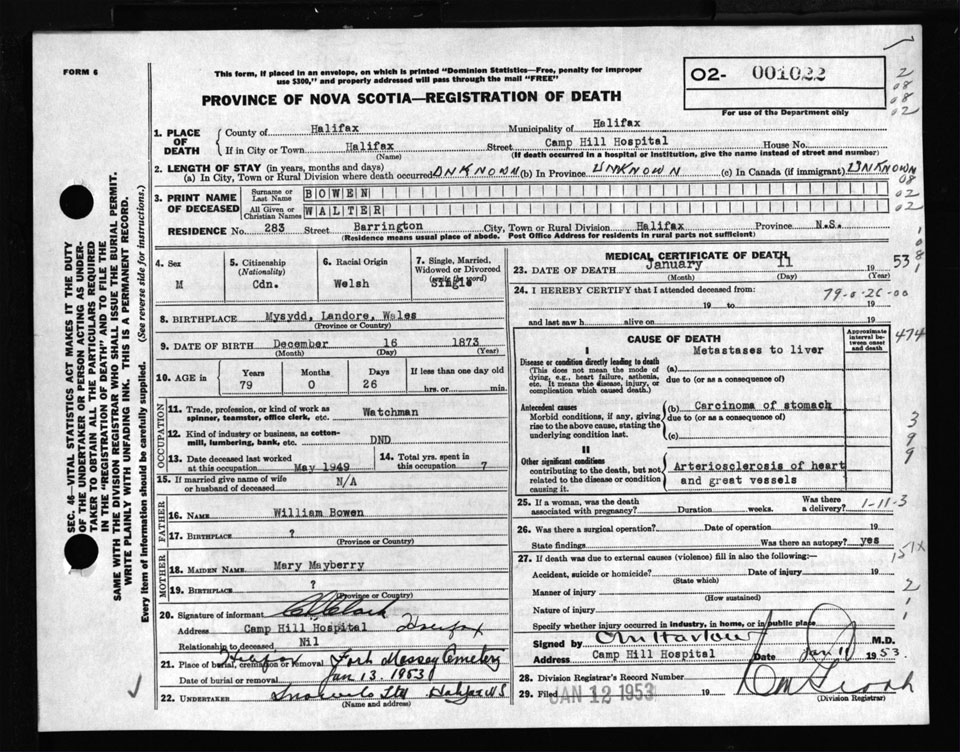 FORM 6
This form, if placed in an envelope, on which is printed "Dominion Statistics—Free, penalty for improper
use $300," and properly addressed will pass through the mail "FREE"
PROVINCE OF NOVA SCOTIA—REGISTRATION OF DEATH
02- 001022
For use of the Department only
2
08
08
02
1. PLACE OF DEATH
County of Halifax Municipality of Halifax
If in City or Town Halifax Street Camp Hill Hospital House No.
(Name) (If death occurred in a hospital or institution, give the name instead of street and number)
2. LENGTH OF STAY (in years, months and days)
(a) In City, Town or Rural Division where death occurred UNKNOWN (b) In Province UNKNOWN (c) In Canada (if immigrant) UNKNOWN
08
3. PRINT NAME OF DECEASED
Surname or Last Name BOWEN 02
All Given or Christian Names WALTER 02
RESIDENCE No. 283 Street Barrington City, Town or Rural Division Halifax Province N.S.
(Residence means usual place of abode. Post Office Address for residents in rural parts not sufficient)
4. Sex
M
5. Citizenship
(Nationality)
Cdn.
6. Racial Origin
Welsh
7. Single, Married,
Widowed or Divorced
(write the word)
Single
8. BIRTHPLACE Mysydd, Landore, Wales
(Province or Country)
9. DATE OF BIRTH December 16 1873
(Month) (Day) (Year)
10. AGE in
Years Months Days If less than one day old
79 0 26 hrs. or min.
OCCUPATION
11. Trade, profession, or kind of work as
spinner, teamster, office clerk, etc. Watchman
12. Kind of industry or business, as cotton-
mill, lumbering, bank, etc. DND
13. Date deceased last worked
at this occupation May 1949
14. Total yrs. spent in
this occupation ?
15. If married give name of wife
or husband of deceased N/A
FATHER
16. NAME William Bowen
17. BIRTHPLACE ?
(Province or Country)
MOTHER
18. MAIDEN NAME Mary Mayberry
19. BIRTHPLACE ?
(Province or Country)
20. Signature of informant Clark
Address Camp Hill Hospital Halifax
Relationship to deceased Nil
21. Place of burial, cremation or removal Halifax Fort Massey Cemetery
Date of burial or removal Jan 13. 1953
22. UNDERTAKER Snow's Ltd Halifax N.S
(Name and address)
MEDICAL CERTIFICATE OF DEATH
23. DATE OF DEATH January 11 1953
(Month) (Day) (Year)
24. I HEREBY CERTIFY that I attended deceased from:
79-0-26-00
19 to 19
and last saw h alive on 19
CAUSE OF DEATH
Approximate
interval be-
tween onset
and death
474
I
Disease or condition directly leading to death
(This does not mean the mode of
dying, e.g., heart failure, asthenia,
etc. It means the disease, injury, or
complication which caused death.)
Metastases to liver
(a)
due to (or as a consequence of)
Antecedent causes
Morbid conditions, if any, giving
rise to the above cause, stating the
underlying condition last.
(b) Carcinoma of stomach
due to (or as a consequence of)
(c)
3
9
9
II
Other significant conditions
contributing to the death, but not
related to the disease or condition
causing it.
Arteriosclerosis of heart
and great vessels
25. If a woman, was the death
associated with pregnancy? Duration weeks. Was there
a delivery? 1-11-3
26. Was there a surgical operation? Date of operation 19
State findings Was there an autopsy? yes
151x
27. If death was due to external causes (violence) fill in also the following:—
Accident, suicide or homicide? Date of injury 19
(State which)
Manner of injury
(How sustained)
Nature of injury
Specify whether injury occurred in industry, in home, or in public place
2
1
1
Signed by M.D.
Address Camp Hill Hospital Date Jan 11 1953.
28. Division Registrar's Record Number
29. Filed JAN 12 1953 19
(Division Registrar)
SEC. 46—VITAL STATISTICS ACT MAKES IT THE DUTY
OF THE UNDERTAKER OR PERSON ACTING AS UNDER-
TAKER TO OBTAIN ALL THE PARTICULARS REQUIRED
IN THE "REGISTRATION OF DEATH" AND TO FILE THE
SAME WITH THE DIVISION REGISTRAR WHO SHALL ISSUE THE BURIAL PERMIT.
WRITE PLAINLY WITH UNFADING INK. THIS IS A PERMANENT RECORD.
Every item of Information should be carefully supplied. (See reverse side for instructions.)